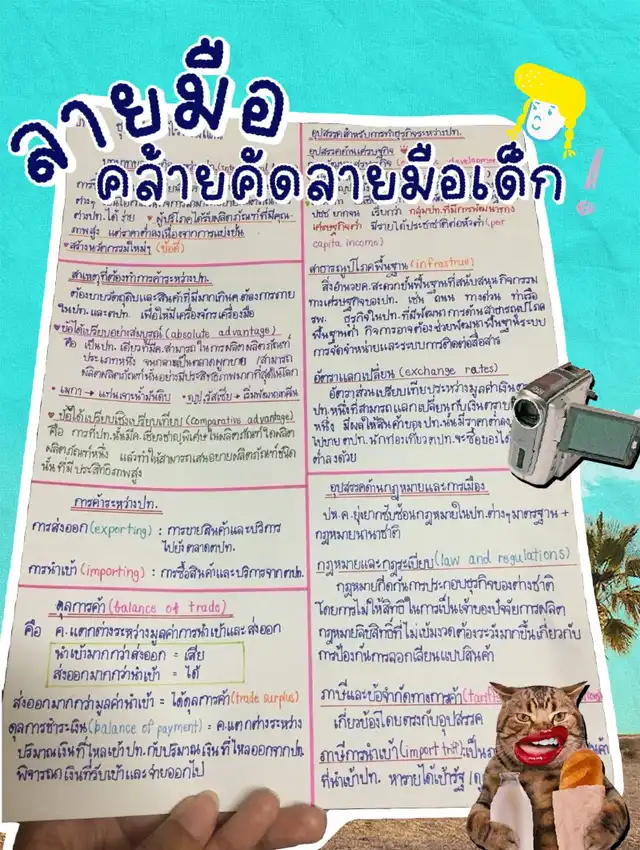 ลายมือ
คล้ายคัดลายมือเด็ก
ต่างปท.ได้ง่าย ♥ ผู้บริโภคได้รับผลิตภัณฑ์ที่มีคุณ-
ภาพสูง แต่ราคาต่ำลงเนื่องจากการแข่งขัน
♥สร้างนวัตกรรมใหม่ๆ (ข้อดี)
สาเหตุที่ต้องทำการค้าระหว่างปท.
ต้องขายวัตถุดิบและสินค้าที่มีมากเกินค.ต้องการภาย
ในปท.และตปท. เพื่อให้มีเครื่องจักรเครื่องมือ
♥ข้อได้เปรียบอย่างสมบูรณ์ (absolute advantage)
คือ เป็นปท.เดียวที่มีค.สามารถในการผลิตผลิตภัณฑ์
ประเภทหนึ่ง จนกลายเป็นตลาดผูกขาด /สามารถ
ผลิตผลิตภัณฑ์นั้นอย่างมีประสิทธิภาพมากที่สุดในโลก
♥ข้อได้เปรียบเชิงเปรียบเทียบ (comparative advantage)
คือ การที่ปท.นั้นมีค.เชี่ยวชาญพิเศษในผลิตภัณฑ์ใดผลิต
ผลิตภัณฑ์หนึ่ง แล้วทำให้สามารถเสนอขายผลิตภัณฑ์ชนิด
นั้นที่มีประสิทธิภาพสูง
การค้าระหว่างปท.
การส่งออก(exporting) : การขายสินค้าและบริการ
ไปยังตลาดตปท.
การนำเข้า (importing) : การซื้อสินค้าและบริการจากตปท.
ดุลการค้า (balance of trade)
คือ ค.แตกต่างระหว่างมูลค่าการนำเข้าและส่งออก
นำเข้ามากกว่าส่งออก = เสีย
ส่งออกมากกว่านำเข้า = ได้
ส่งออกมากกว่ามูลค่านำเข้า = ได้ดุลการค้า(trade surplus)
ดุลการชำระเงิน(balance of payment) = ค.แตกต่างระหว่าง
ปริมาณเงินที่ไหลเข้าปท.กับปริมาณเงินที่ไหลออกจากปท.
พิจารณาเงินที่รับเข้าและจ่ายออกไป
อุปสรรคสำหรับการทำธุรกิจระหว่างปท.
อุปสรรคด้านเศรษฐกิจ
development
ปชช ยากจน เรียกว่า กลุ่มปท.ที่มีการพัฒนาทาง
เศรษฐกิจต่ำ มีรายได้ประชาชาติต่อหัวต่ำ(per
capita income)
สาธารณูปโภคพื้นฐาน (infrastrue)
สิ่งอำนวยค.สะดวกขั้นพื้นฐานที่สนับสนุนกิจกรรม
ทางเศรษฐกิจของปท. เช่น ถนน ทางด่วน ท่าเรือ
รพ. ธุรกิจในปท.ที่มีพัฒนาการด้านสาธารณูปโภค
พื้นฐานต่ำ กิจการอาจต้องช่วยพัฒนาพื้นฐานระบบ
การจัดจำหน่ายและระบบการติดต่อสื่อสาร
อัตราแลกเปลี่ยน (exchange rates)
อัตราส่วนเปรียบเทียบระหว่างมูลค่าเงินต
ปท.หนึ่งที่สามารถแลกเปลี่ยนกับเงินตรา
หนึ่ง มีผลให้สินค้าของปท.นั้นมีราคาต่ำลง
ไปขายตปท.นักท่องเที่ยวตปท.จะซื้อของได้
ต่ำลงด้วย
อุปสรรคด้านกฎหมายและการเมือง
ปห.ค.ยุ่งยากซับซ้อนกฎหมายในปท.ต่างๆมาตรฐาน +
กฎหมายนานาชาติ
กฎหมายและกฎระเบียบ (law and regulations)
กฎหมายกีดกันการประกอบธุรกิจของต่างชาติ
โดยการไม่ให้สิทธิในการเป็นเจ้าของปัจจัยการผลิต
กฎหมายลิขสิทธิ์ที่ไม่เข้มงวดต้องระวังมากขึ้นเกี่ยวกับ
การป้องกันการลอกเลียนแบบสินค้า
ภาษีและข้อจำกัดทางการค้า(
เกี่ยวข้องโดยตรงกับอุปสรรค
ภาษีการนำเข้า(import
ที่นำเข้าปท. หารายได้เข้ารัฐ